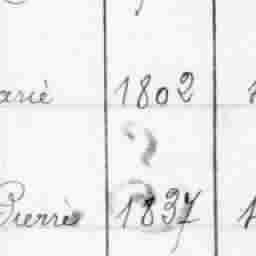 arié 1802
Pierre 1837